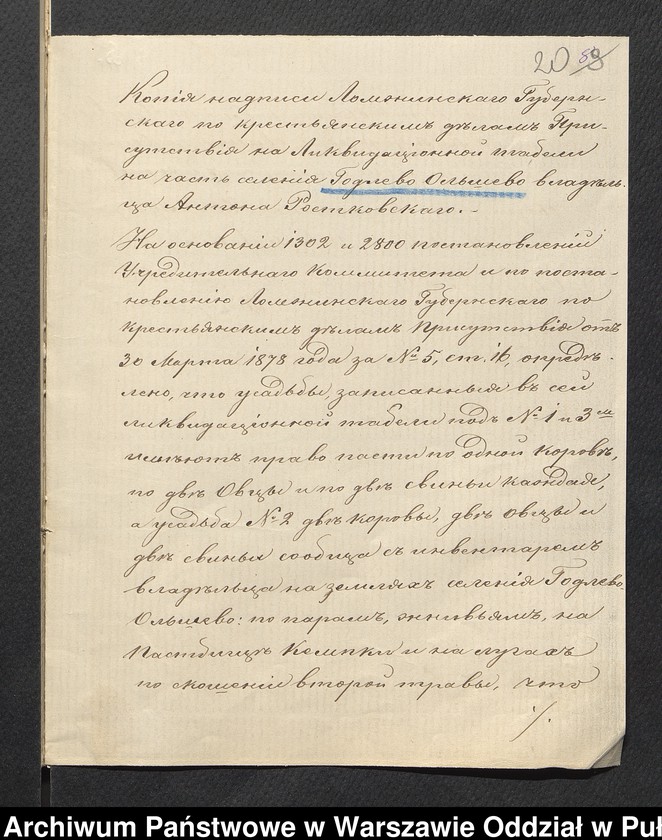 20 59
Копія надписи Ломжинскаго Губерн-
скаго по крестьянскимъ дѣламъ При-
сутствія на Ликвидаціонной табели
на часть селенія Годлево Ольшево владѣль-
ца Антона Ростковскаго.-
На основаніи 1302 и 2800 постановленій
Учредительнаго Коммитета и по поста-
новленію Ломжинскаго Губернскаго по
крестьянскимъ дѣламъ Присутствія отъ
30 Марта 1878 года за № 5, ст. 16, опредѣ-
лено, что усадьбы, записанныя въ сей
ликвидаціонной табели подъ № 1 и 3ми
имѣютъ право пасти по одной коровѣ,
по двѣ овцы и по двѣ свиньи каждая,
а усадьба № 2 двѣ коровы, двѣ овцы и
двѣ свиньи сообща съ инвентаремъ
владѣльца на земляхъ селенія Годлево-
Ольшево: по парамъ, жнивьямъ, на
Пастбищѣ Кемпки и на лугахъ
по скошеніи второй травы, что
·/.
Archiwum Państwowe w Warszawie Oddział w Puł